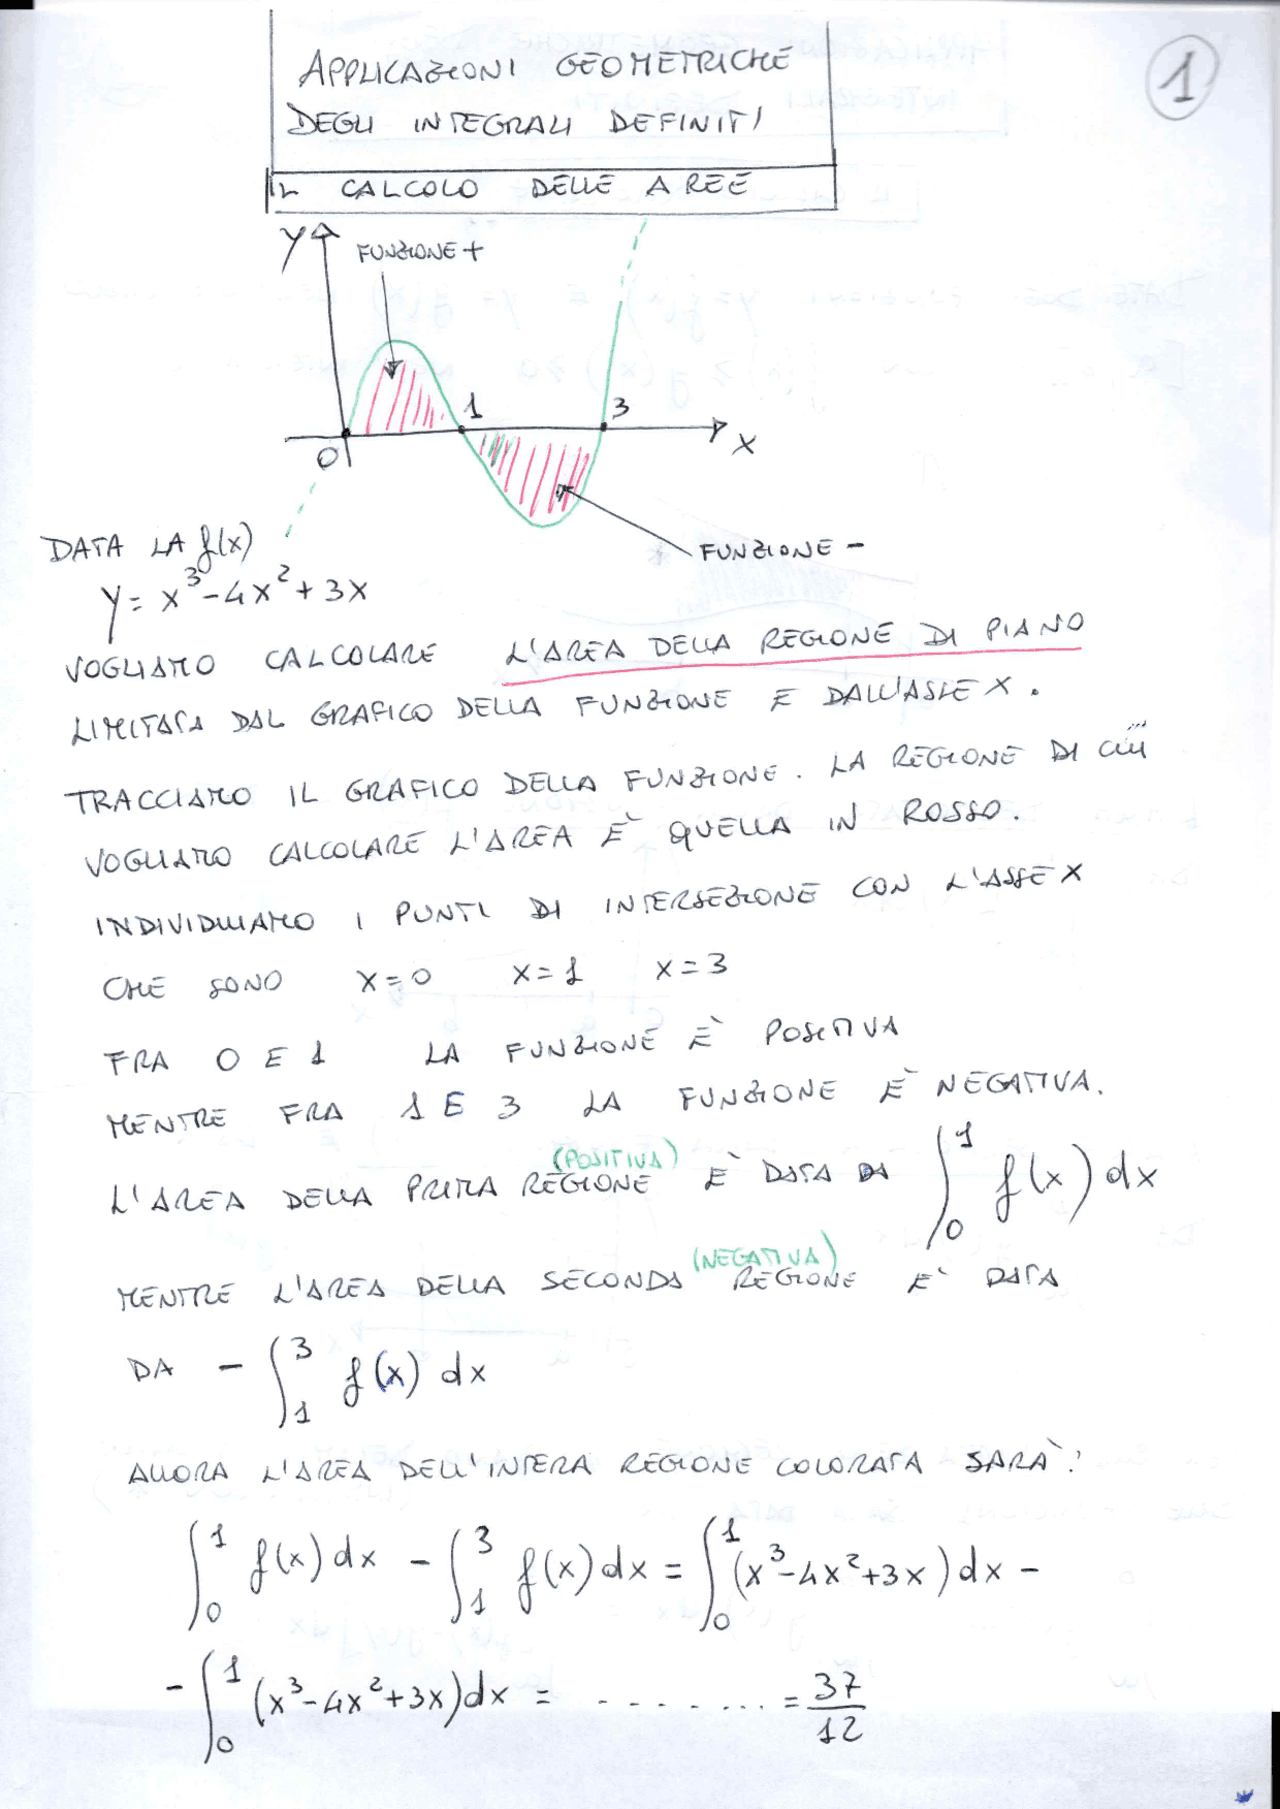 1
APPLICAZIONI GEOMETRICHE
DEGLI INTEGRALI DEFINITI
IL CALCOLO DELLE AREE
Y
FUNZIONE +
1
3
0
X
FUNZIONE -
DATA LA f(x)
y = x³-4x²+3x
VOGLIAMO CALCOLARE L'AREA DELLA REGIONE DI PIANO
LIMITATA DAL GRAFICO DELLA FUNZIONE E DALL'ASSE X.
TRACCIAMO IL GRAFICO DELLA FUNZIONE. LA REGIONE DI CUI
VOGLIAMO CALCOLARE L'AREA È QUELLA IN ROSSO.
INDIVIDUIAMO I PUNTI DI INTERSEZIONE CON L'ASSE X
CHE SONO X=0 X=1 X=3
FRA 0 E 1 LA FUNZIONE È POSITIVA
MENTRE FRA 1 E 3 LA FUNZIONE È NEGATIVA.
(POSITIVA)
L'AREA DELLA PRIMA REGIONE È DATA DA ∫₀¹ f(x) dx
(NEGATIVA)
MENTRE L'AREA DELLA SECONDA REGIONE E' DATA
DA - ∫₁³ f(x) dx
ALLORA L'AREA DELL'INTERA REGIONE COLORATA SARÀ:
∫₀¹ f(x) dx - ∫₁³ f(x) dx = ∫₀¹ (x³-4x²+3x) dx -
- ∫₀¹ (x³-4x²+3x) dx = ........ = 37/12